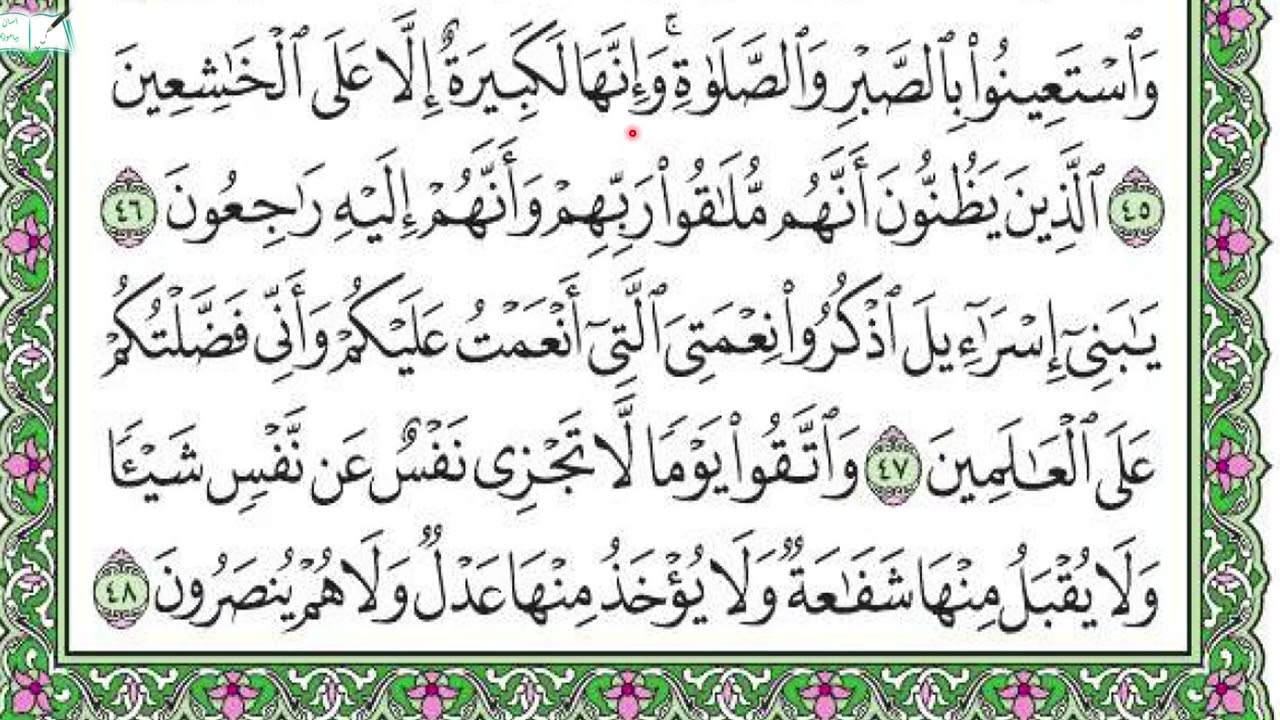 وَٱسْتَعِينُوا۟ بِٱلصَّبْرِ وَٱلصَّلَوٰةِ ۚ وَإِنَّهَا لَكَبِيرَةٌ إِلَّا عَلَى ٱلْخَٰشِعِينَ
٤٥ ٱلَّذِينَ يَظُنُّونَ أَنَّهُم مُّلَٰقُوا۟ رَبِّهِمْ وَأَنَّهُمْ إِلَيْهِ رَٰجِعُونَ ٤٦
يَٰبَنِىٓ إِسْرَٰٓءِيلَ ٱذْكُرُوا۟ نِعْمَتِىَ ٱلَّتِىٓ أَنْعَمْتُ عَلَيْكُمْ وَأَنِّى فَضَّلْتُكُمْ
عَلَى ٱلْعَٰلَمِينَ ٤٧ وَٱتَّقُوا۟ يَوْمًا لَّا تَجْزِى نَفْسٌ عَن نَّفْسٍ شَيْـًٔا
وَلَا يُقْبَلُ مِنْهَا شَفَٰعَةٌ وَلَا يُؤْخَذُ مِنْهَا عَدْلٌ وَلَا هُمْ يُنصَرُونَ ٤٨